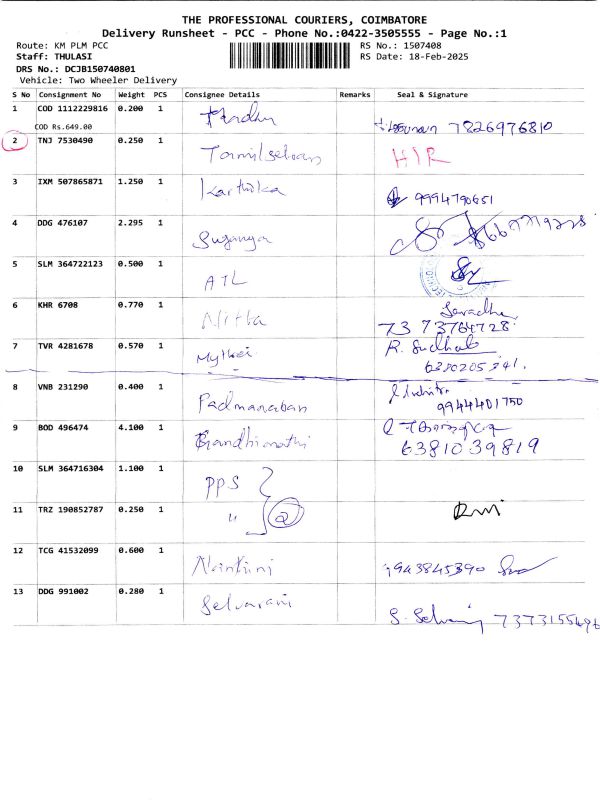 THE PROFESSIONAL COURIERS, COIMBATORE
Delivery Runsheet - PCC - Phone No.:0422-3505555 - Page No.:1
Route: KM PLM PCC RS No.: 1507408
Staff: THULASI RS Date: 18-Feb-2025
DRS No.: DCJB150740801
Vehicle: Two Wheeler Delivery
S No Consignment No Weight PCS Consignee Details Remarks Seal & Signature
1 COD 1112229816 0.200 1
COD Rs.649.00 7826976810
2 TNJ 7530490 0.250 1 Tamilselvan HIR
3 IXM 507865871 1.250 1 Karthika 9994790651
4 DDG 476107 2.295 1 Suganya
5 SLM 364722123 0.500 1 ATL
6 KHR 6708 0.770 1 Nittla
73 73764728
7 TVR 4281678 0.570 1 Mythei R. Sudhab
6380205341.
8 VNB 231290 0.400 1 Padmanaban
9944401750
9 BOD 496474 4.100 1 Bandhimathi
6381039819
10 SLM 364716304 1.100 1 PPS
11 TRZ 190852787 0.250 1 " 2
12 TCG 41532099 0.600 1 9943845390
13 DDG 991002 0.280 1 Selvarani S. Selvarani 7373155696